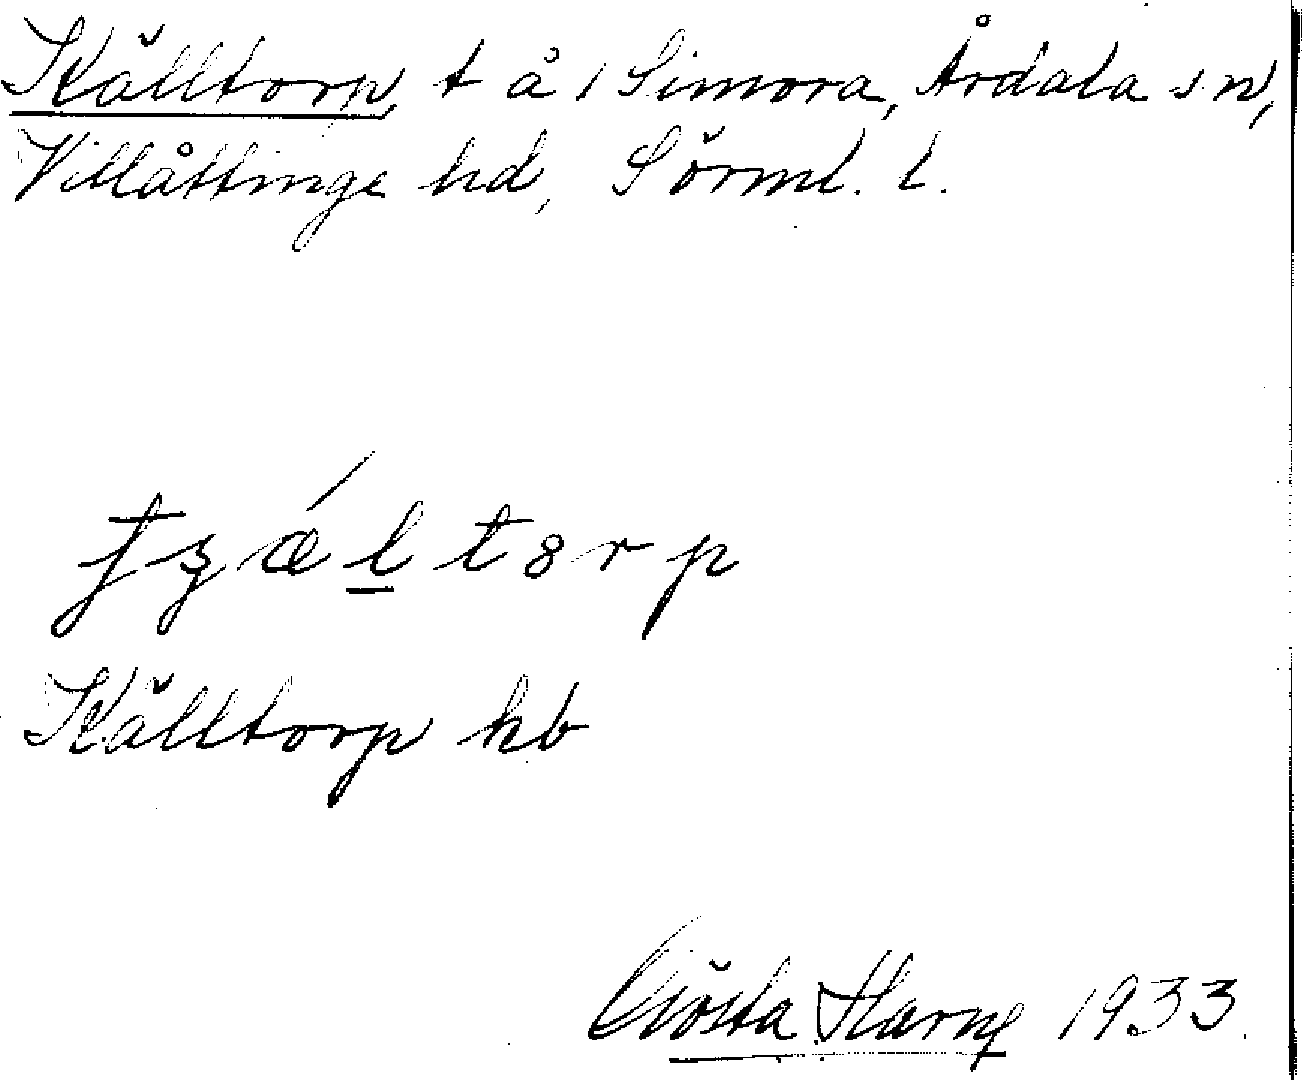 Källtorp, t å / Simora, Årdala sn,
Villåttinge hd, Sörml. l.
tʒǽltorp
Källtorp kb
Gösta Harne 1933.